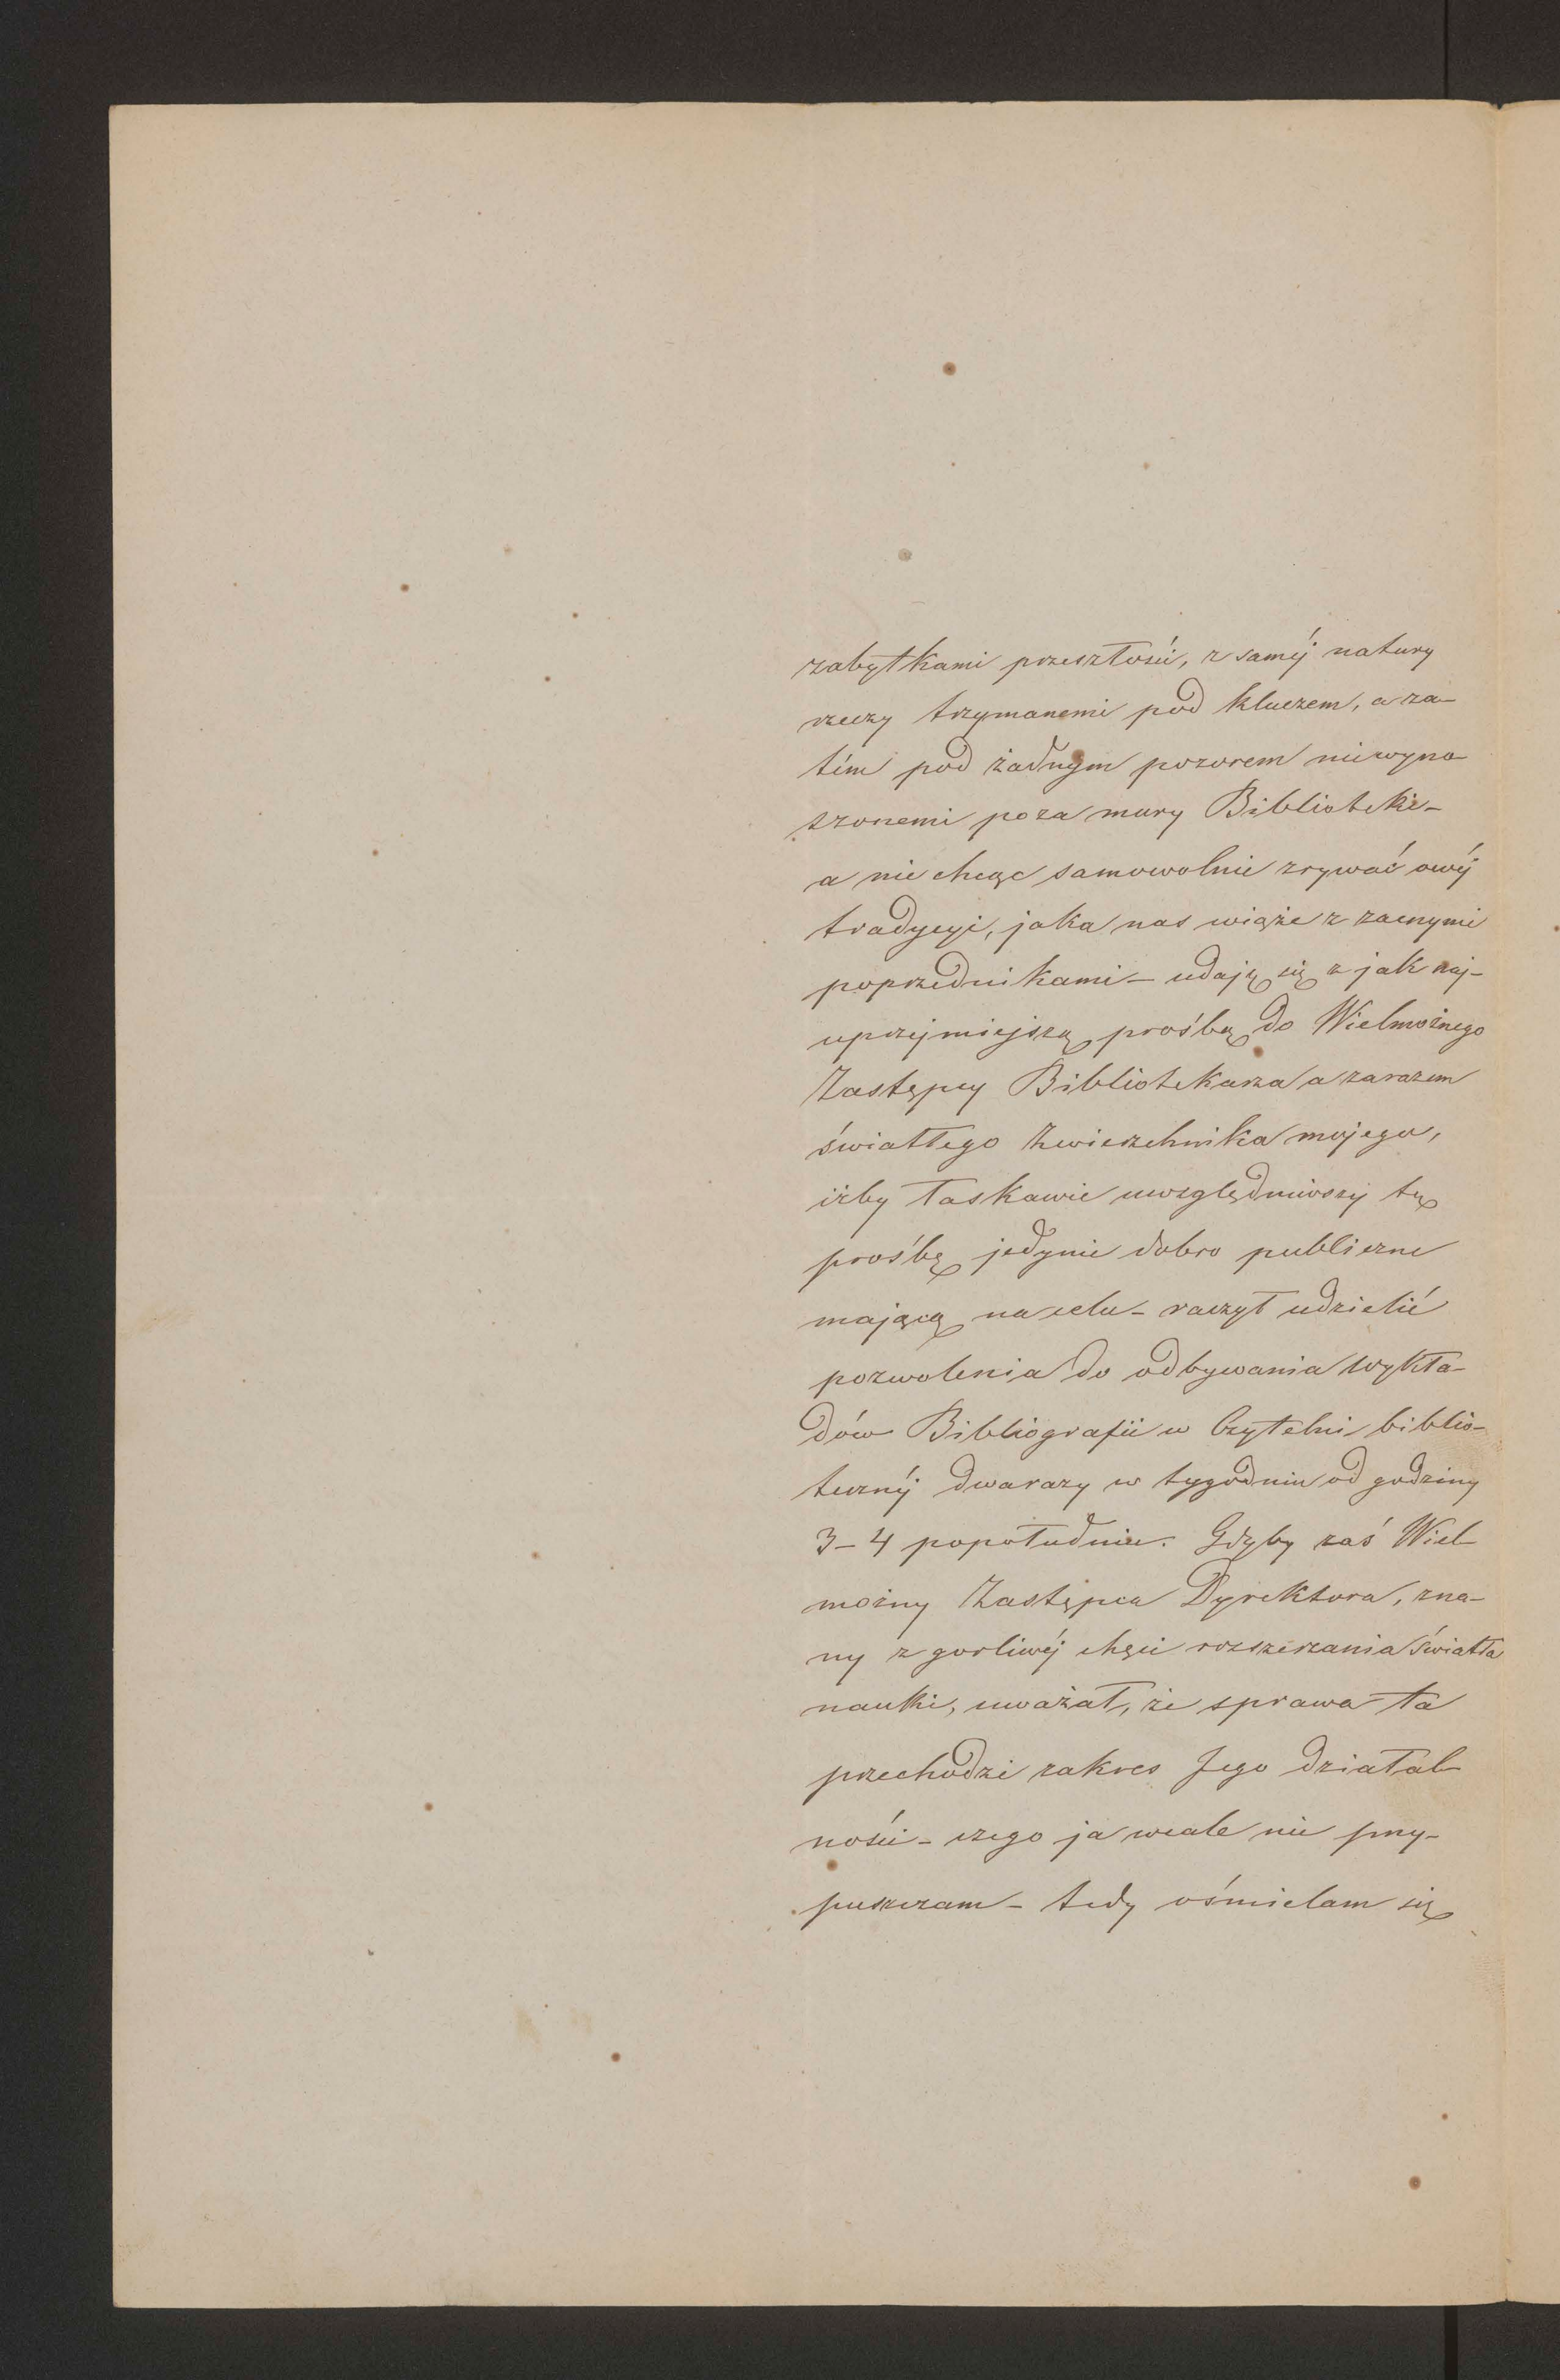 zabytkami przeszłości, z saméj natury
rzeczy trzymanemi pod kluczem, a za-
tém pod żadnym pozorem niewyno-
szonemi poza mury Biblioteki-
a nie chcąc samowolnie zrywać owéj
tradycyi, jaka nas wiąże z zacnymi
poprzednikami - udaję się z jak naj-
uprzejmiejszą prośbą do Wielmożnego
Zastępcy Bibliotekarza a zarazem
światłego Zwierzchnika mojego,
iżby łaskawie uwzględniwszy tę
prośbę jedynie dobro publiczne
mającą na celu - raczył udzielić
pozwolenia do odbywania wykła-
dów Bibliografii w Czytelni biblio-
tecznéj dwa razy w tygodniu od godziny
3-4 popołudniu. Gdyby zaś Wiel-
możny Zastępca Dyrektora, zna-
ny z gorliwéj chęci rozszerzania światła
nauki, uważał, że sprawa ta
przechodzi zakres Jego działal-
ności - czego ja wcale nie przy-
puszczam - tedy ośmielam się